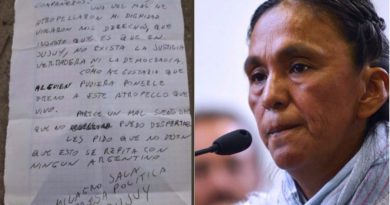 COMPAÑEROS: UNA VEZ MAS ME
ATROPELLARON MI DIGNIDAD
VIOLARON MIS DERECHOS, QUE
INJUSTO QUE ES QUE EN
JUJUY, NO EXISTA LA JUSTICIA
VERDADERA NI LA DEMOCRACIA.
COMO ME GUSTARIA QUE
ALGUIEN PUDIERA PONERLE
FRENO A ESTE ATROPELLO QUE
VIVO.
PARECE UN MAL SUEÑO DEL
QUE NO PUEDO DESPERTAR
LES PIDO QUE NO DEJEN
QUE ESTO SE REPITA CON
NINGUN ARGENTINO
MILAGRO SALA
PRESA POLITICA
JUJUY